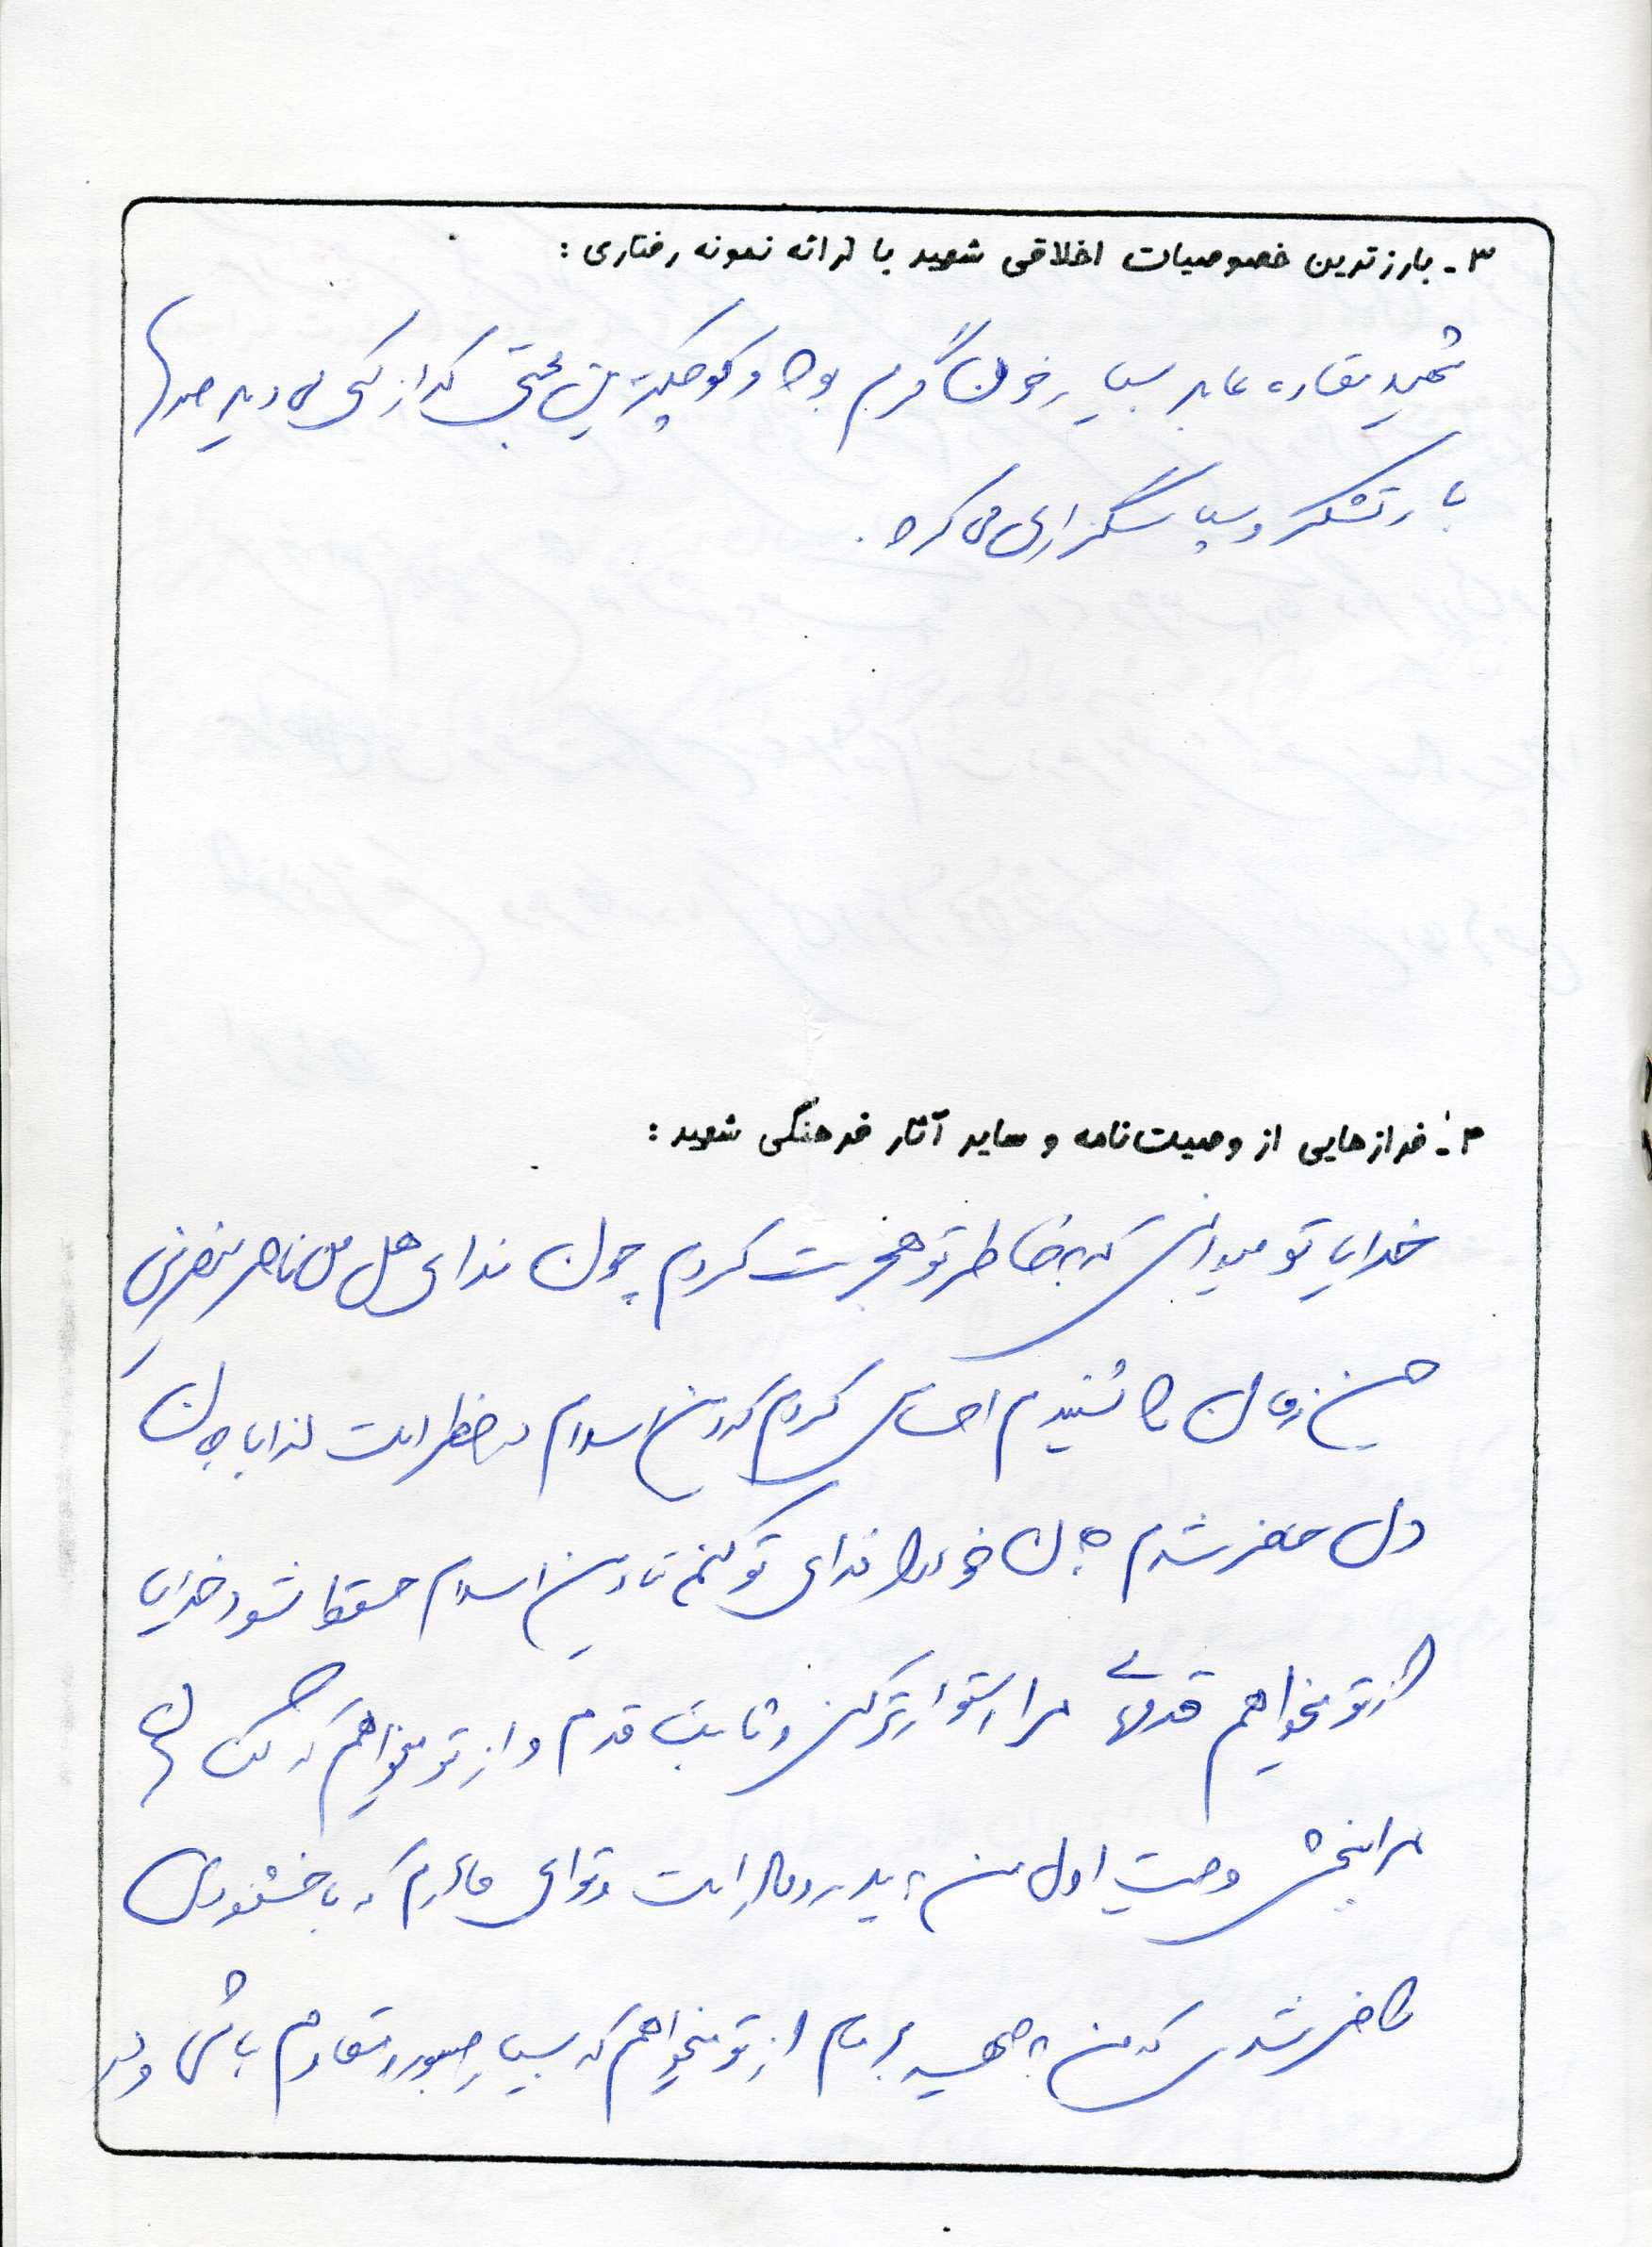 ۳ـ بارزترین خصوصیات اخلاقی شهید با ارائه نمونه رفتاری :
شهید عابد بسیار خون گرم بود و کوچکترین محبتی که از کسی می دید صدها
بار تشکر و سپاسگزاری می کرد .
۴ـ فرازهایی از وصیت‌نامه و سایر آثار فرهنگی شهید :
خدایا تو میدانی که بخاطر تو هجرت کردم چون ندای هل من ناصر ینصرنی
حسین زمان را شنیدم احساس کردم که دین اسلام در خطر است لذا با جان
دل حاضر شدم جان خود را فدای تو کنم تا دین اسلام حفظ شود خدایا
از تو میخواهم قدمهای مرا استوارتر کنی و ثابت قدم و از تو میخواهم که گناهان
مرا ببخشی وصیت اول من به پدر و مادر است و تو ای مادرم که با خشنودی
حاضر شدی که من به جبهه بیایم از تو میخواهم که بسیار صبور و مقاوم باشی و در